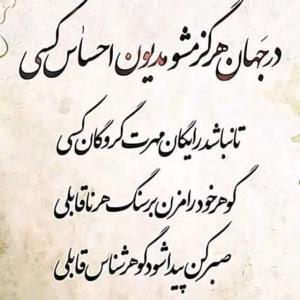 در جهان هرگز مشو مدیون احساس کسی
تا نباشد رایگان مهرت گروگان کسی
گوهر خود را مزن بر سنگ هر ناقابلی
صبر کن پیدا شود گوهر شناس قابلی